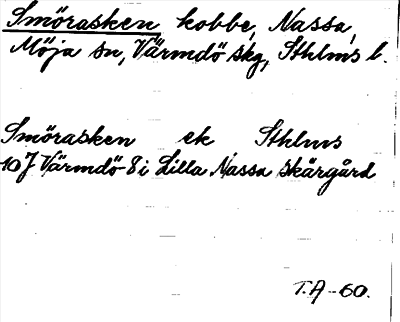 Smörasken, kobbe, Nassa,
Möja sn, Värmdö skg, Sthlms l.
Smörasken ek Sthlms
10J Värmdö-8i Lilla Nassa skärgård
T.A-60.